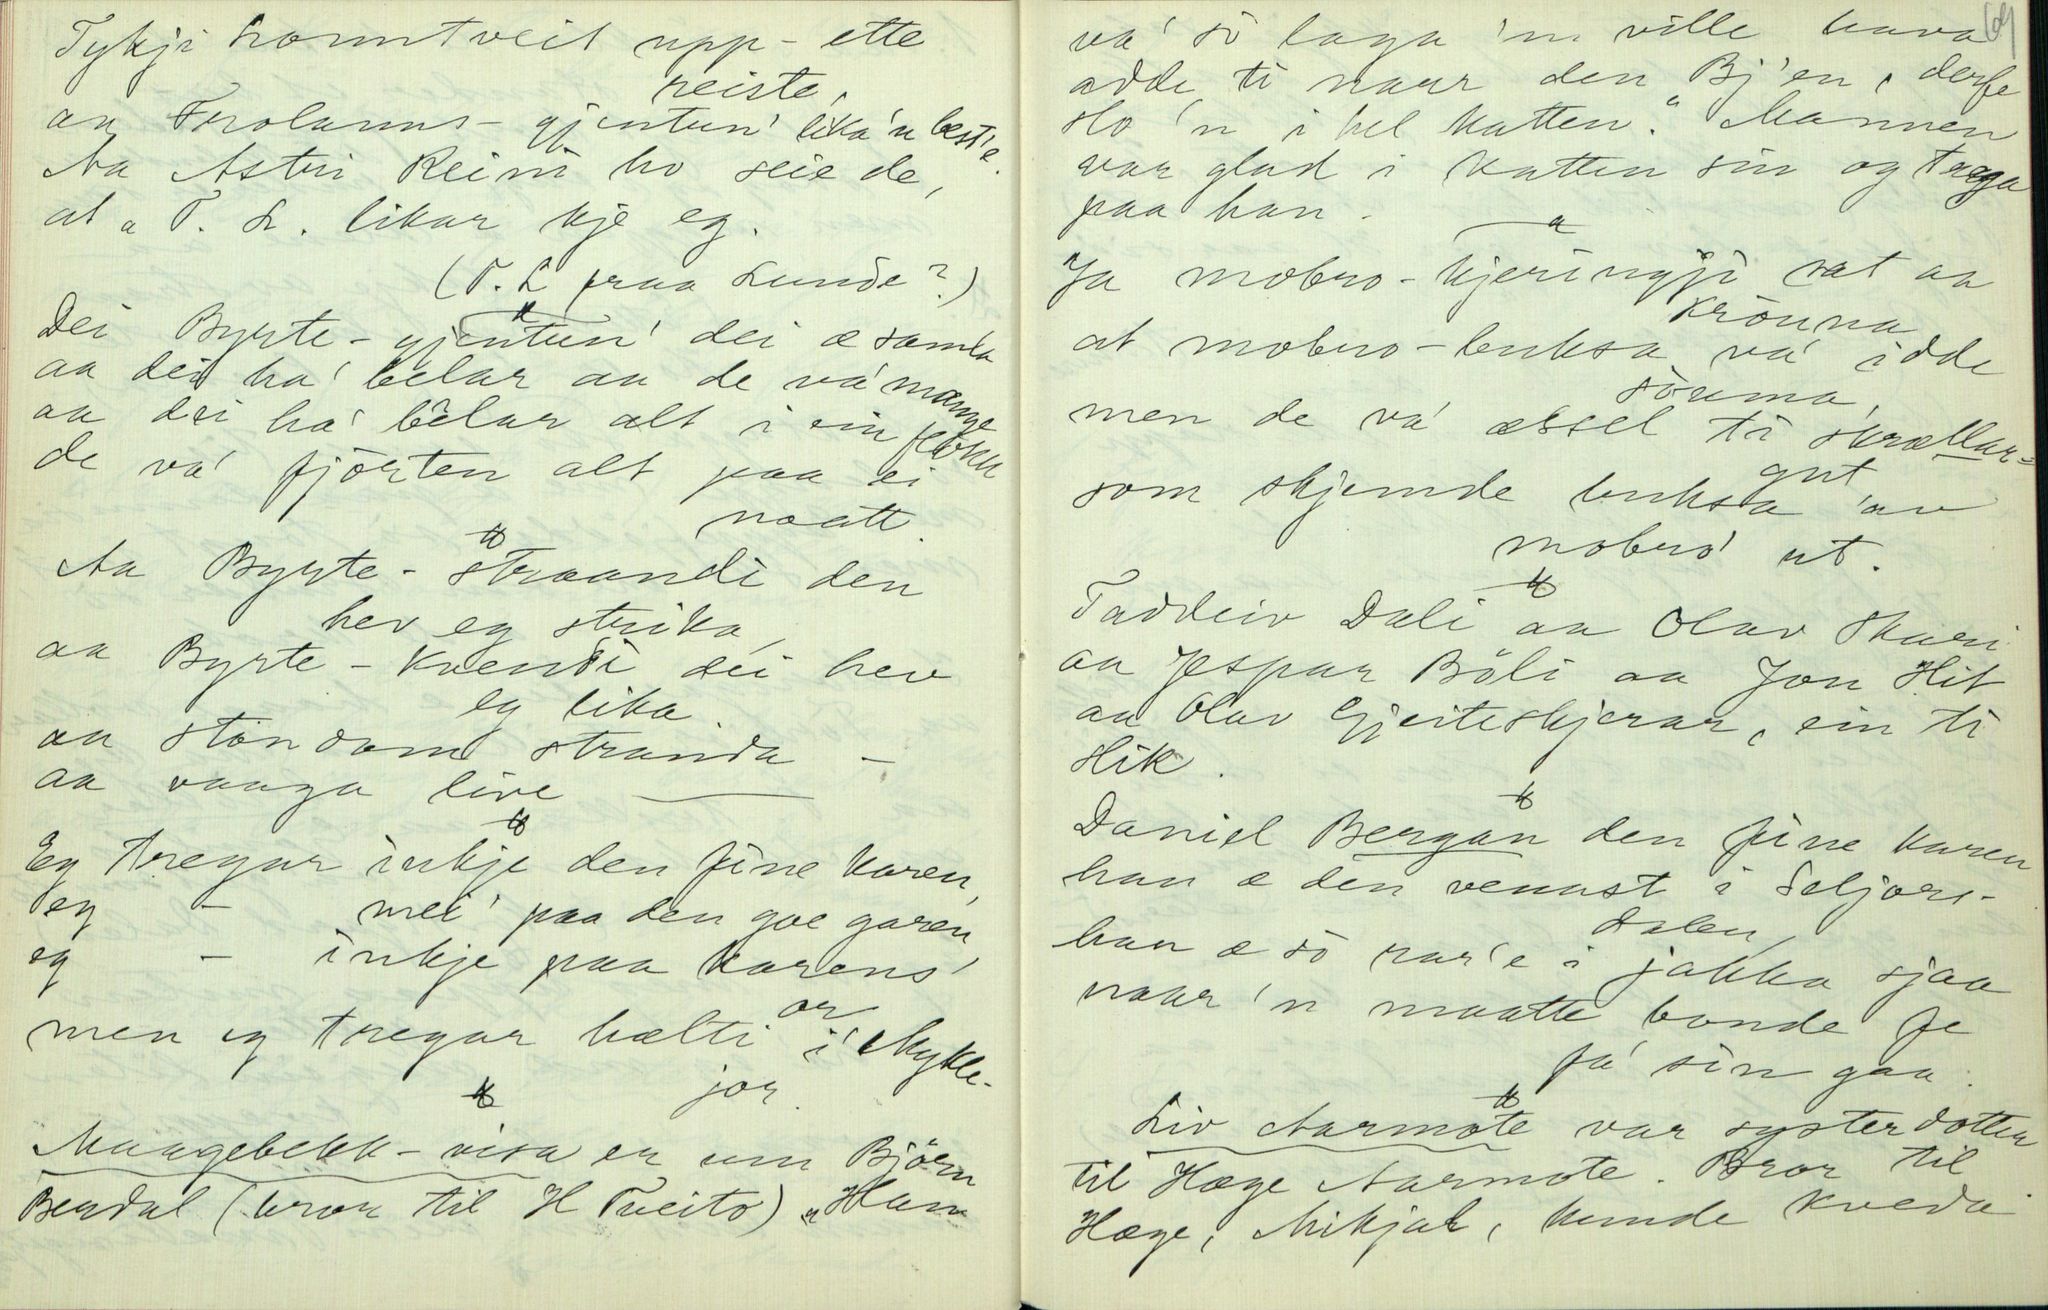 Tykji Homtveit upp-ette
reiste,
aa Frolanns-gjentun' lika'n best'e.
Aa Astri Reini ho seie de,
at "T. L. likar kje eg.
(T. L fraa Lunde?)
Dei Byrte-gjentun' dei æ samla
aa dei ha' belar aa de va' mange
aa dei ha' belar alt i ein flokk
de va' fjorten alt paa ei
naatt.
Aa Byrte-straandi den
hev eg strika,
aa Byrte-kvendi dei hev
eg lika.
aa stondom stranda –
aa vaaga live —
Eg tregar inkje den fine karen,
eg – mei' paa den goe garen,
eg – inkje paa karens'
or
men eg tregar hælti i Mykle-
jor.
Maagebekk-visa er um Björn
Berdal (bror til H Tveito) "Han
69
va' so laga 'm ville hava
adde ti naar den Bj'en, derfe
slo 'n i hel katten." Mannen
var glad i katten sin og trega
paa han.
Ja mobro-kjeringji sat aa
krönna
at mobro-buksa va' idde
söuma,
men de va' æssel ti skrællar-
gut
som skjemde buksa 'av
mobro' ut.
Taddeiv Dali aa Olav Skari
aa Jespar Böli aa Jon Hit
aa Olav Gjeiteskjerar, ein ti
slik.
Daniel Bergan den fine karen
han æ den vennst i Seljors-
dalen,
han æ so rar'e i jakka sjaa
naar 'n maatte bonde fe
fa' sin gaa.
Liv Aarmote var systerdotter
til Hæge Aarmote. Bror til
Hæge, Mikjal, kunde kveda